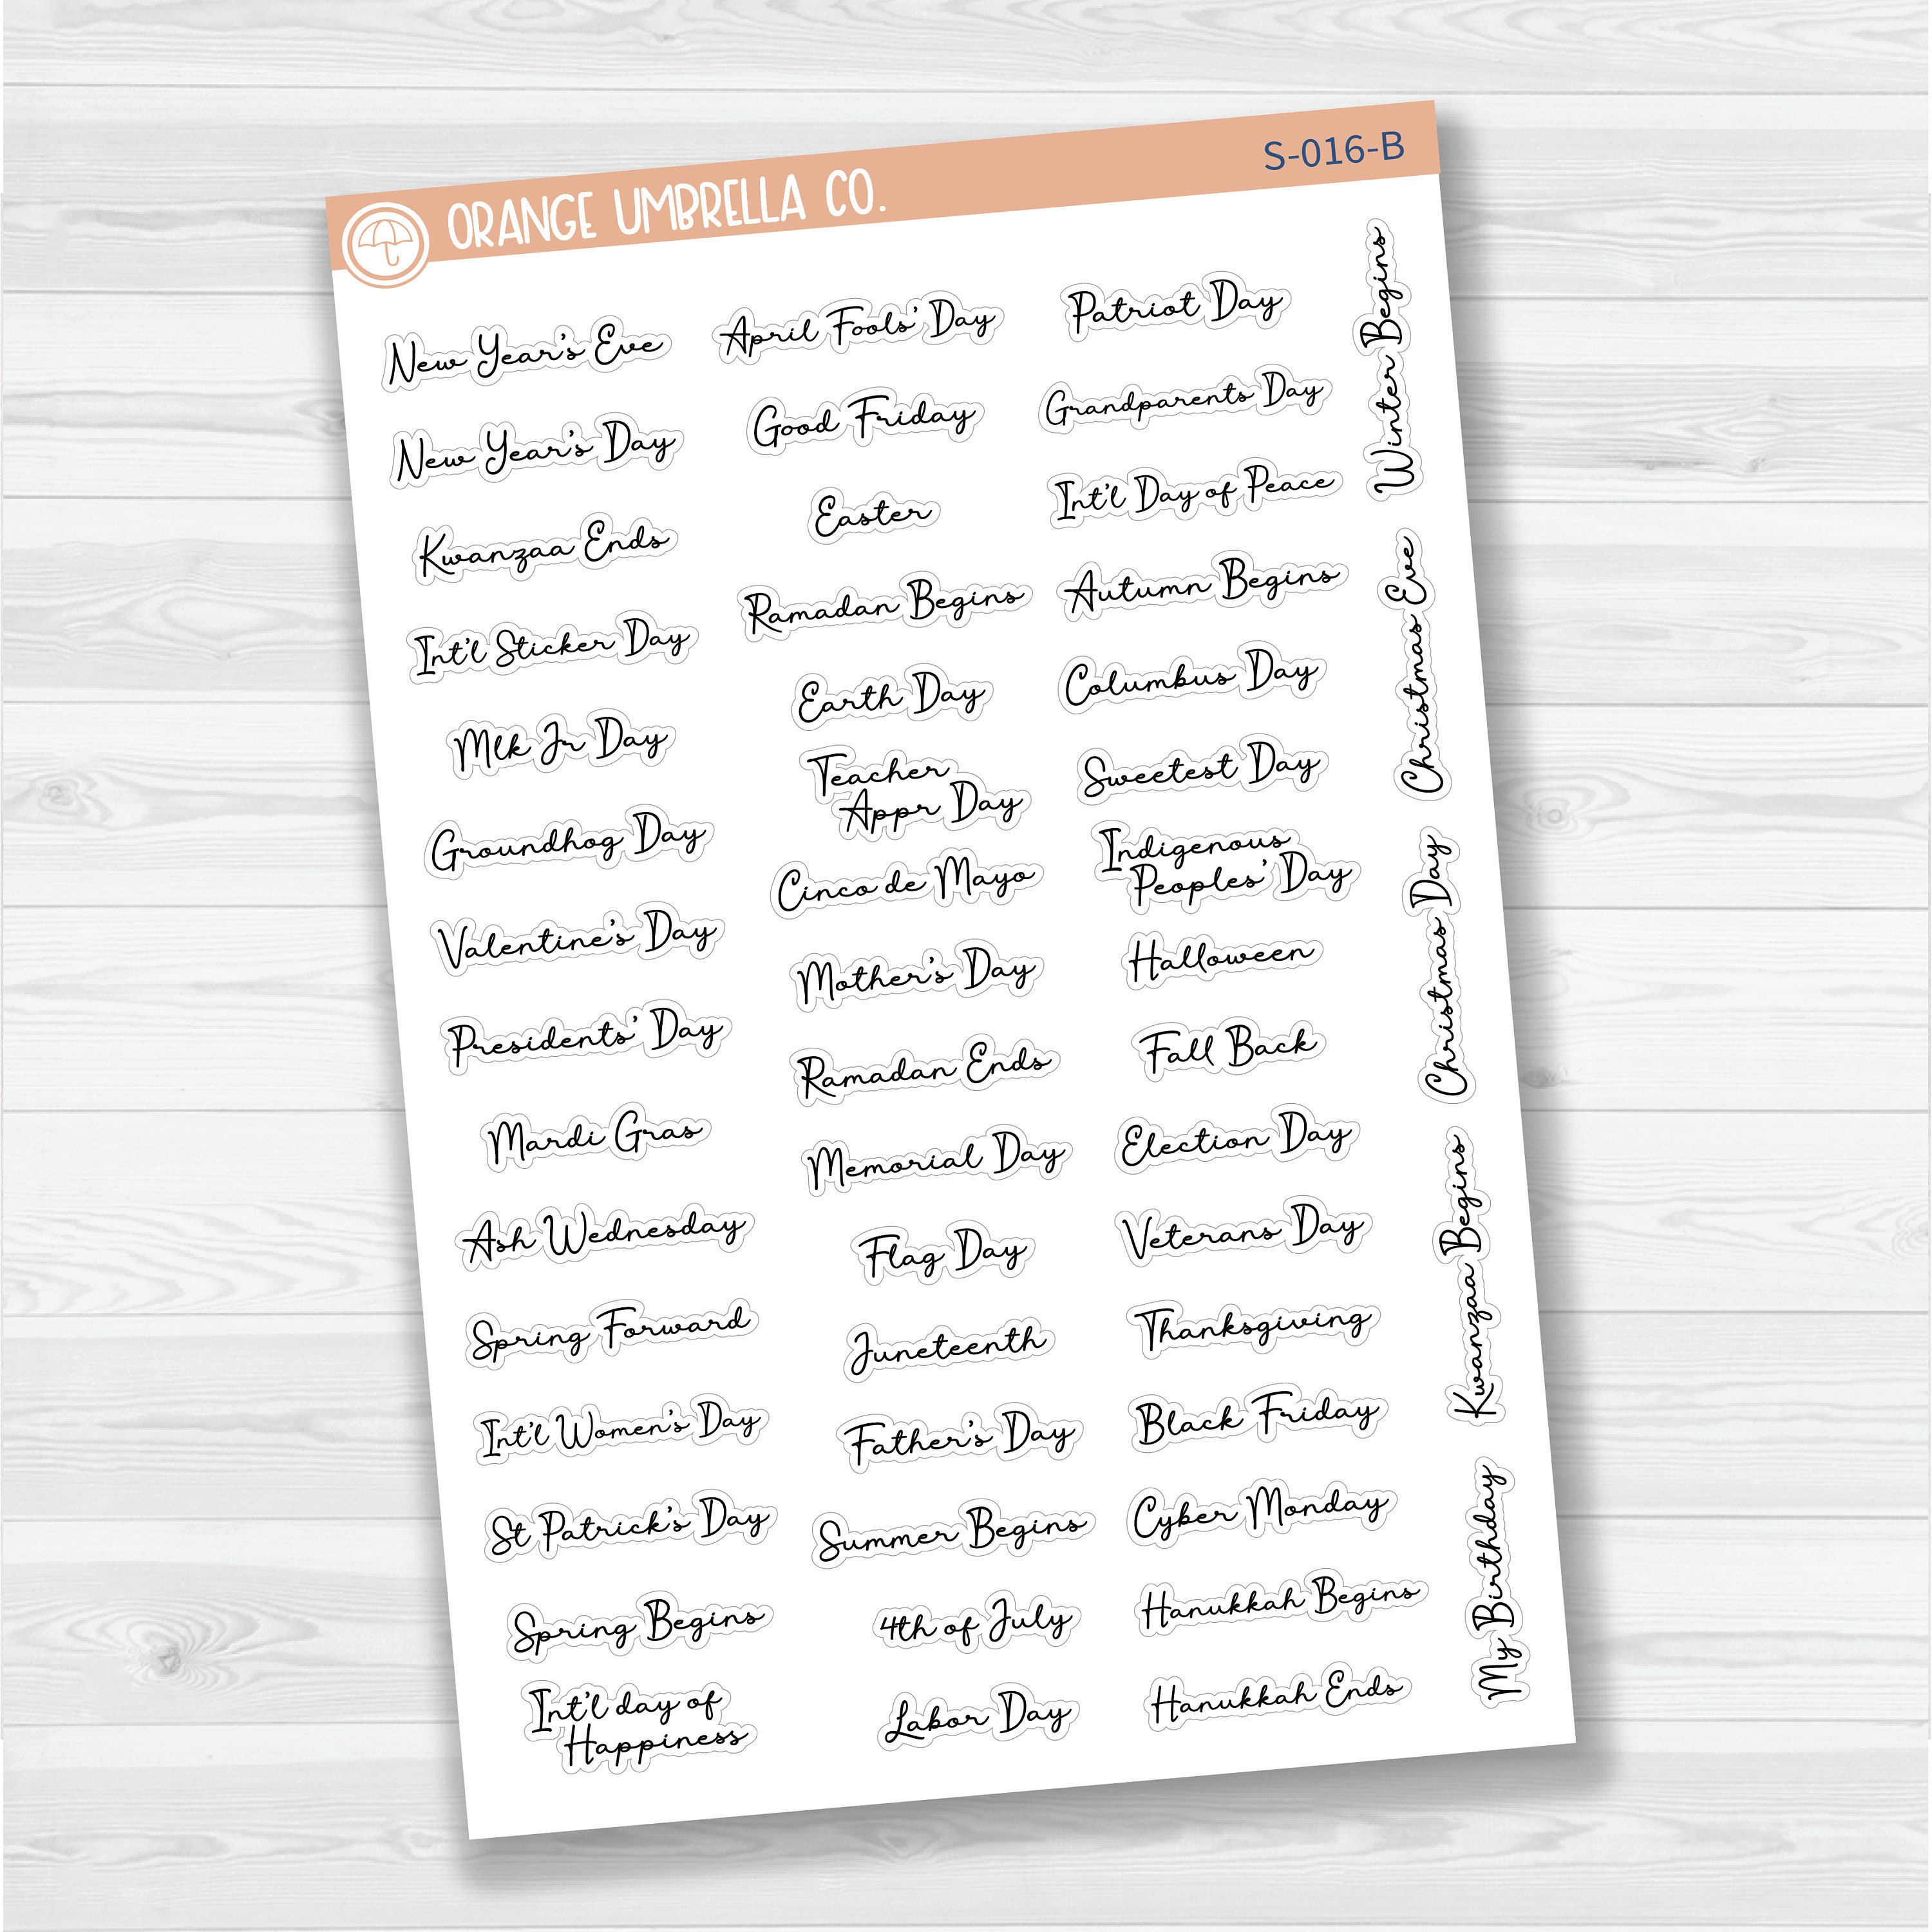 ORANGE UMBRELLA CO.
S-016-B
New Year's Eve
New Year's Day
Kwanzaa Ends
Int'l Sticker Day
Mlk Jr Day
Groundhog Day
Valentine's Day
Presidents' Day
Mardi Gras
Ash Wednesday
Spring Forward
Int'l Women's Day
St Patrick's Day
Spring Begins
Int'l day of
Happiness
April Fools' Day
Good Friday
Easter
Ramadan Begins
Earth Day
Teacher
Appr Day
Cinco de Mayo
Mother's Day
Ramadan Ends
Memorial Day
Flag Day
Juneteenth
Father's Day
Summer Begins
4th of July
Labor Day
Patriot Day
Grandparents Day
Int'l Day of Peace
Autumn Begins
Columbus Day
Sweetest Day
Indigenous
Peoples' Day
Halloween
Fall Back
Election Day
Veterans Day
Thanksgiving
Black Friday
Cyber Monday
Hanukkah Begins
Hanukkah Ends
Winter Begins
Christmas Eve
Christmas Day
Kwanzaa Begins
My Birthday